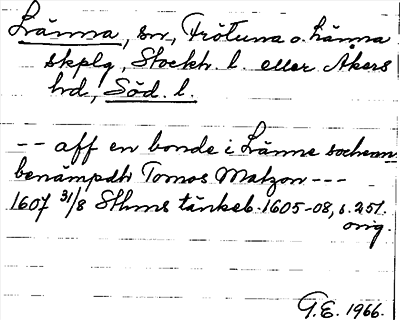 Länna, sn, Frötuna o. Länna
skplg, Stockh. l. eller Åkers
hd, Söd. l.
-- aff en bonde i Länne sochenn
benämpdh Tomos Matzon ---
1607 31/8 Sthms tänkeb. 1605-08, s. 251.
orig.
G.E. 1966.